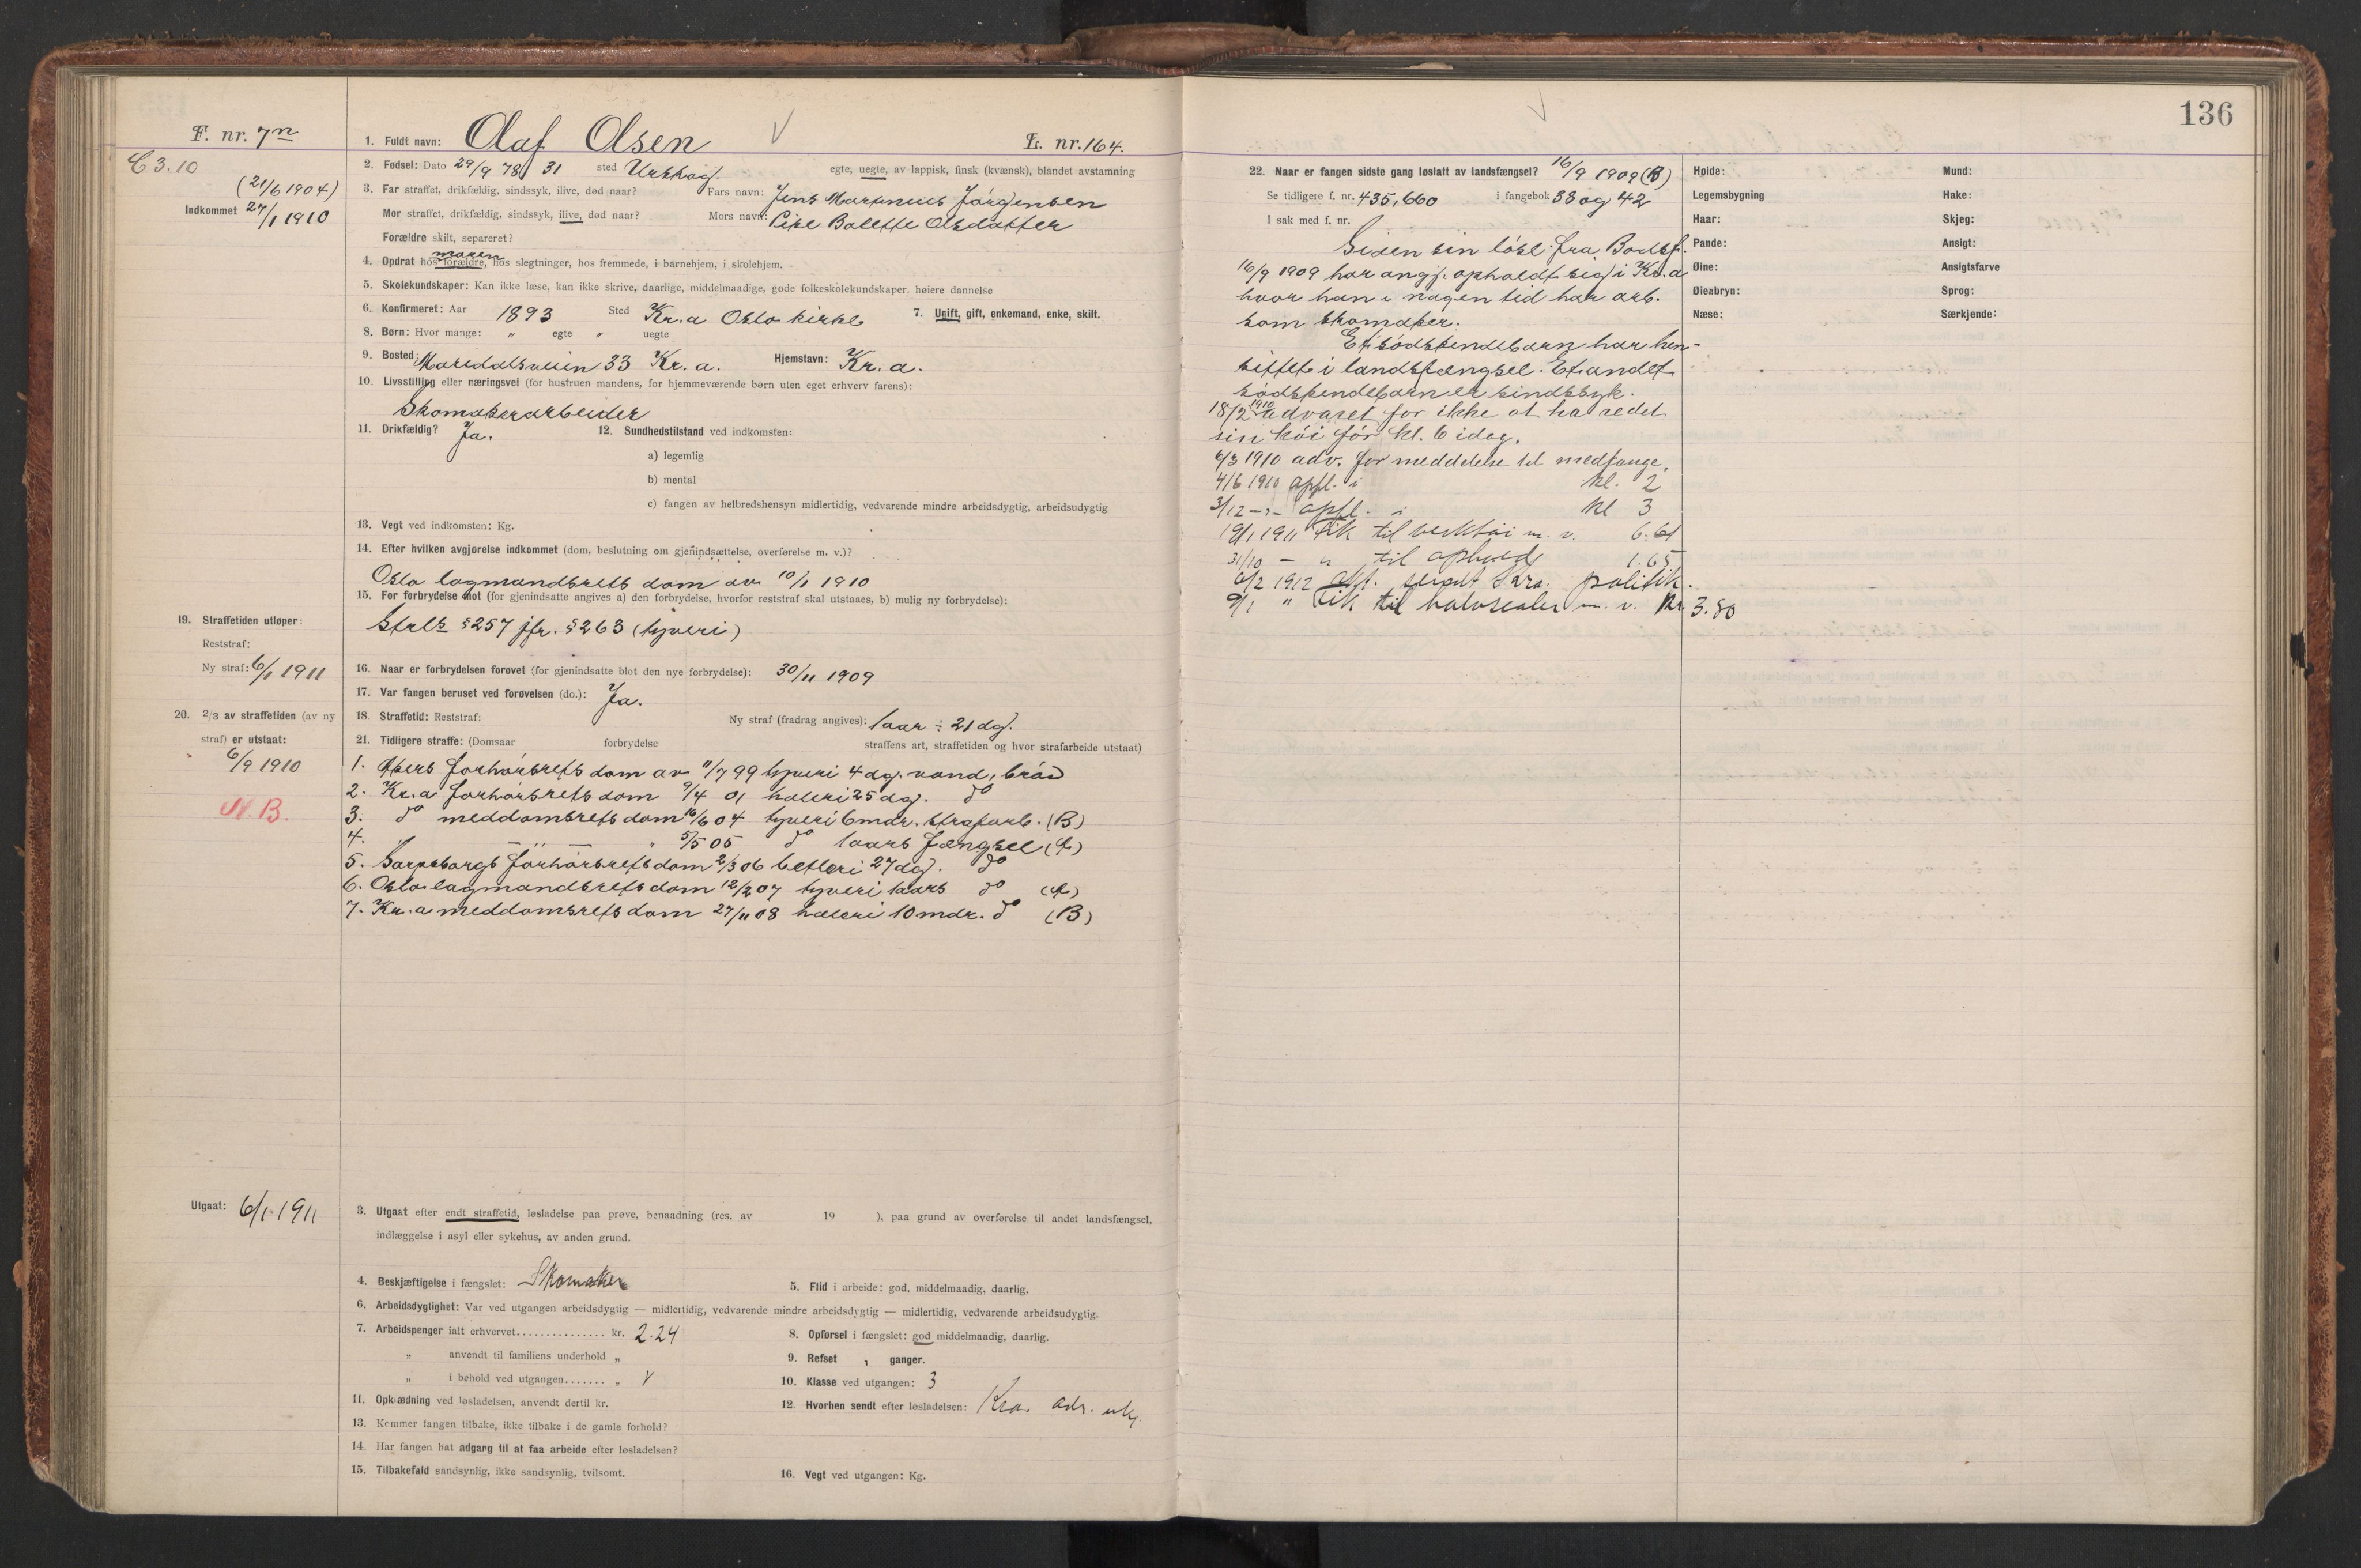 136
F. nr. 7
C 3.10
(21/6 1904)
Indkommet 27/1 1910
1. Fuldt navn: Olaf Olsen
L. nr. 164.
2. Fødsel: Dato 29/9 78 31 sted Urskog egte, uegte, av lappisk, finsk (kvænsk), blandet avstamning
3. Far straffet, drikfældig, sindssyk, ilive, død naar? Fars navn: Jens Martinius Jørgensen
Mor straffet, drikfældig, sindssyk, ilive, død naar? Mors navn: Pike Bolette Olsdatter
Forældre skilt, separeret?
moren
4. Opdrat hos forældre, hos slegtninger, hos fremmede, i barnehjem, i skolehjem.
5. Skolekundskaper: Kan ikke læse, kan ikke skrive, daarlige, middelmaadige, gode folkeskolekundskaper. høiere dannelse
6. Konfirmeret: Aar 1893 Sted Kr.a Oslo kirke 7. Ugift, gift, enkemand, enke, skilt.
8. Børn: Hvor mange: " egte " uegte
9. Bosted: Maridalsveien 33 Kr.a. Hjemstavn: Kr.a.
10. Livsstilling eller næringsvei (for hustruen mandens, for hjemmeværende børn uten eget erhverv farens):
Skomakerarbeider
11. Drikfældig? Ja. 12. Sundhedstilstand ved indkomsten:
a) legemlig
b) mental
c) fangen av helbredshensyn midlertidig, vedvarende mindre arbeidsdygtig, arbeidsudygtig
13. Vegt ved indkomsten: Kg.
14. Efter hvilken avgjørelse indkommet (dom, beslutning om gjenindsættelse, overførelse m. v.)?
Oslo lagmandsrets dom av 10/1 1910
15. For forbrydelse mot (for gjenindsatte angives a) den forbrydelse, hvorfor reststraf skal utstaaes, b) mulig ny forbrydelse):
Strl. § 257 jfr. § 263 (tyveri)
19. Straffetiden utløper:
Reststraf:
Ny straf: 6/1 1911
16. Naar er forbrydelsen forøvet (for gjenindsatte blot den nye forbrydelse): 30/11 1909
17. Var fangen beruset ved forøvelsen (do.): Ja.
18. Straffetid: Reststraf: Ny straf (fradrag angives): 1 aar ÷ 21 dg.
20. 2/3 av straffetiden (av ny
straf) er utstaat:
6/9 1910
N.B.
21. Tidligere straffe: (Domsaar forbrydelse straffens art, straffetiden og hvor strafarbeide utstaat)
1. Akers forhørsrets dom av 11/7 99 tyveri 4 dg. vand, brød
2. Kr.a forhørsrets dom 9/4 01 hæleri 25 dg. do
3. do meddomsrets dom 16/6 04 tyveri 6 mdr. strafarb. (B)
4. " — " — " 5/5 05 do 1 aars fængsel
5. Sarpsborgs forhørsrets dom 2/3 06 betleri 27 dg. do
6. Oslo lagmandsrets dom 12/2 07 tyveri 1 aars do
7. Kr.a meddomsrets dom 27/11 08 hæleri 10 mdr. do (B)
Utgaat: 6/1 1911
3. Utgaat efter endt straffetid, løsladelse paa prøve, benaadning (res. av 19 ), paa grund av overførelse til andet landsfængsel,
indlæggelse i asyl eller sykehus, av anden grund.
4. Beskjæftigelse i fængslet: Skomaker 5. Flid i arbeide: god, middelmaadig, daarlig.
6. Arbeidsdygtighet: Var ved utgangen arbeidsdygtig — midlertidig, vedvarende mindre arbeidsdygtig — midlertidig, vedvarende arbeidsudygtig.
7. Arbeidspenger ialt erhvervet............... kr. 2.24 8. Opførsel i fængslet: god middelmaadig, daarlig.
" anvendt til familiens underhold " 9. Refset , ganger.
" i behold ved utgangen....... " 10. Klasse ved utgangen: 3
11. Opklædning ved løsladelsen, anvendt dertil kr. 12. Hvorhen sendt efter løsladelsen: Kra. adr. uk.
13. Kommer fangen tilbake, ikke tilbake i de gamle forhold?
14. Har fangen hat adgang til at faa arbeide efter løsladelsen?
15. Tilbakefald sandsynlig, ikke sandsynlig, tvilsomt. 16. Vegt ved utgangen: Kg.
22. Naar er fangen sidste gang løslatt av landsfængsel? 16/9 1909 (B)
Se tidligere f. nr. 435, 660 i fangebok 38 og 42
I sak med f. nr.
Siden sin løsl. fra Bodsf.
16/9 1909 har angj. opholdt sig i Kr.a
hvor han i nogen tid har arb.
som skomaker.
Et sødskendebarn har hen-
sittet i landsfængsel. Et andet
sødskendebarn er sindssyk.
18/2 1910 advaret for ikke at ha redet
sin køi før kl. 6 idag.
6/3 1910 adv. for meddelelse til medfange.
4/6 1910 opfl. i kl. 2
3/12 -"- opfl. i kl 3
19/1 1911 Fik til verktøi m. v. 6.61
31/10 — " til ophold 1.65
6/2 1912 sendt Kra. politik.
9/1 " Fik til halvsaaler m. v. Kr. 3.80
Høide: Mund:
Legemsbygning Hake:
Haar: Skjeg:
Pande: Ansigt:
Øine: Ansigtsfarve
Øienbryn: Sprog:
Næse: Særkjende: